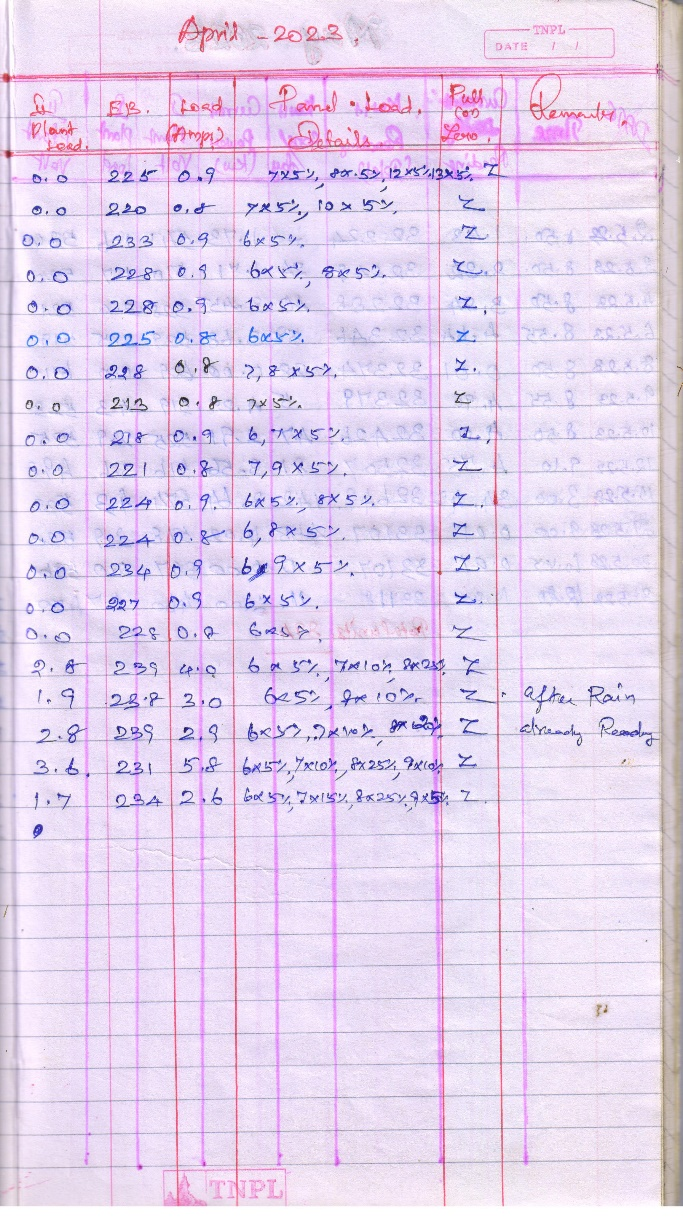 April - 2023.
TNPL
DATE / /
Plant Load.
E.B.
Load (Amps)
Panel Load. Details.
Full (or) Zero.
Remarks.
0.0 225 0.9 7x5%, 8x5%, 12x5% 13x5% Z
0.0 220 0.8 7x5%, 10x5%. Z
0.0 233 0.9 6x5%. Z
0.0 228 0.9 6x5%, 8x5%. Z.
0.0 228 0.9 6x5%. Z.
0.0 225 0.8 6x5%. Z.
0.0 228 0.8 7,8x5%. Z.
0.0 213 0.8 7x5%. Z
0.0 218 0.9 6,7x5%. Z
0.0 221 0.8 7,9x5%. Z
0.0 224 0.9. 6x5%, 8x5%. Z.
0.0 224 0.8 6,8x5%. Z
0.0 234 0.9 6,9x5%. Z.
0.0 227 0.9 6x5%. Z.
0.0 228 6x5%. Z
2.8 239 4.0 6x5%, 7x10%, 8x25%. Z
1.9 238 3.0 6x5%, 9x10%. Z. after Rain
2.8 239 2.9 6x5%, 7x10%, 8x20% Z already Ready
3.6. 231 5.8 6x5%, 7x10%, 8x25%, 9x10% Z
1.7 234 2.6 6x5%, 7x15%, 8x25%, 9x5% Z.
TNPL